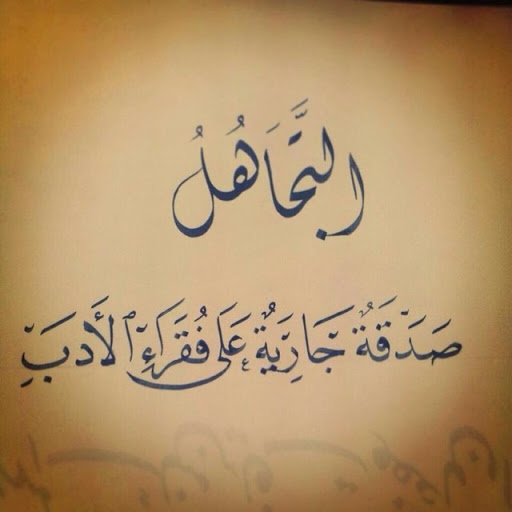 التَّجَاهُلُ
صَدَقَةٌ جَارِيَةٌ عَلَى فُقَرَاءِ ٱلْأَدَبِ